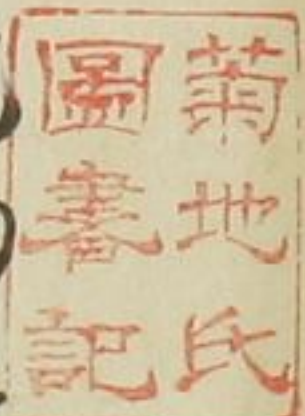 菊地氏
圖書記